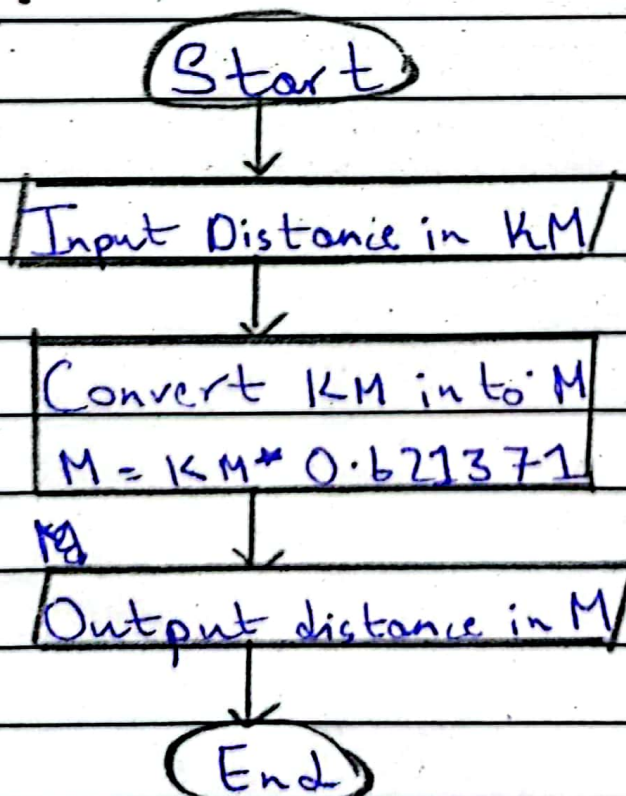 Start
Input Distance in KM
Convert KM into M
M = KM* 0.621371
Output distance in M
End